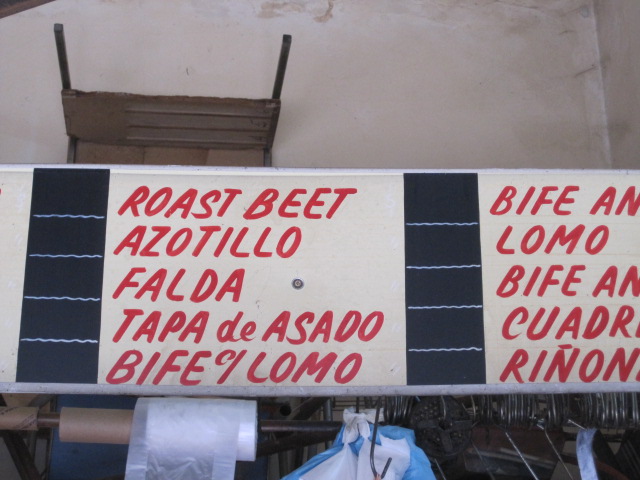 ROAST BEET
AZOTILLO
FALDA
TAPA de ASADO
BIFE c/ LOMO
BIFE AN
LOMO
BIFE AN
CUADRI
RIÑON